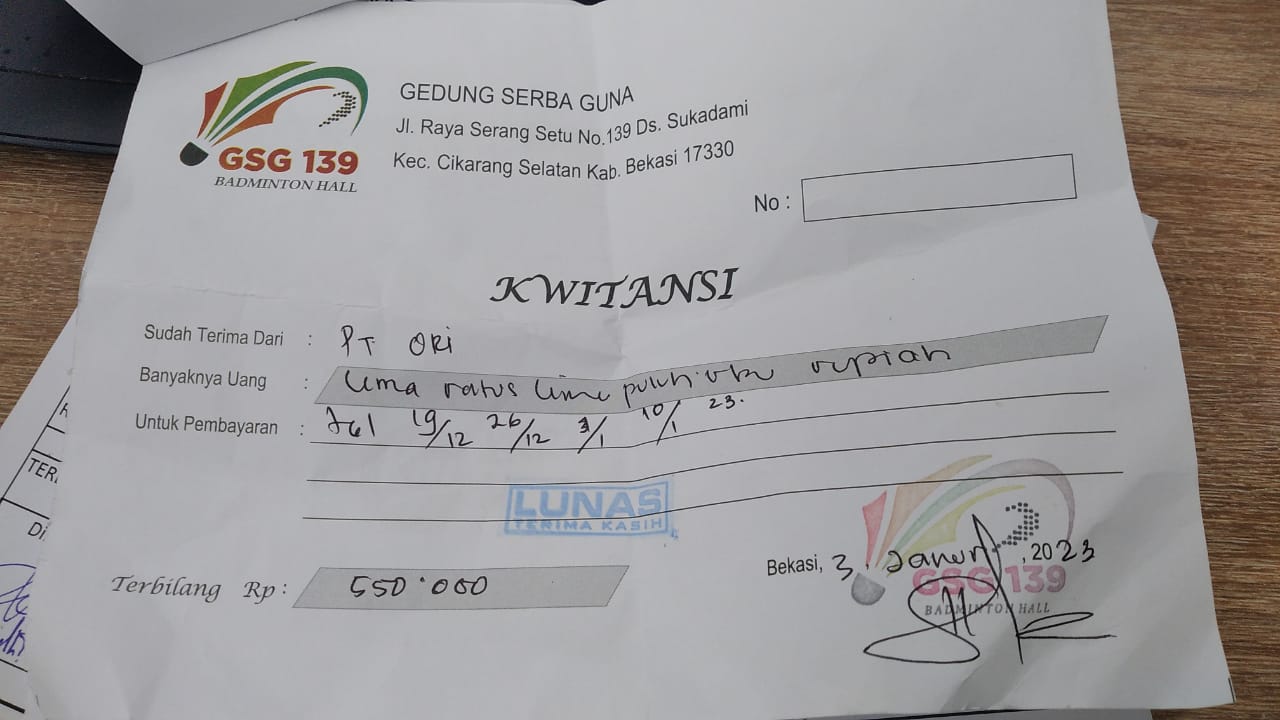 GSG 139
BADMINTON HALL
GEDUNG SERBA GUNA
Jl. Raya Serang Setu No.139 Ds. Sukadami
Kec. Cikarang Selatan Kab. Bekasi 17330
No :
KWITANSI
Sudah Terima Dari : PT ORI
Banyaknya Uang : Lima ratus lima puluh ribu rupiah
Untuk Pembayaran : tgl 19/12 26/12 3/1 10/1 23.
LUNAS
TERIMA KASIH
Bekasi, 3 Januari, 2023
GSG 139
BADMINTON HALL
Terbilang Rp : 550.000
TER
Di